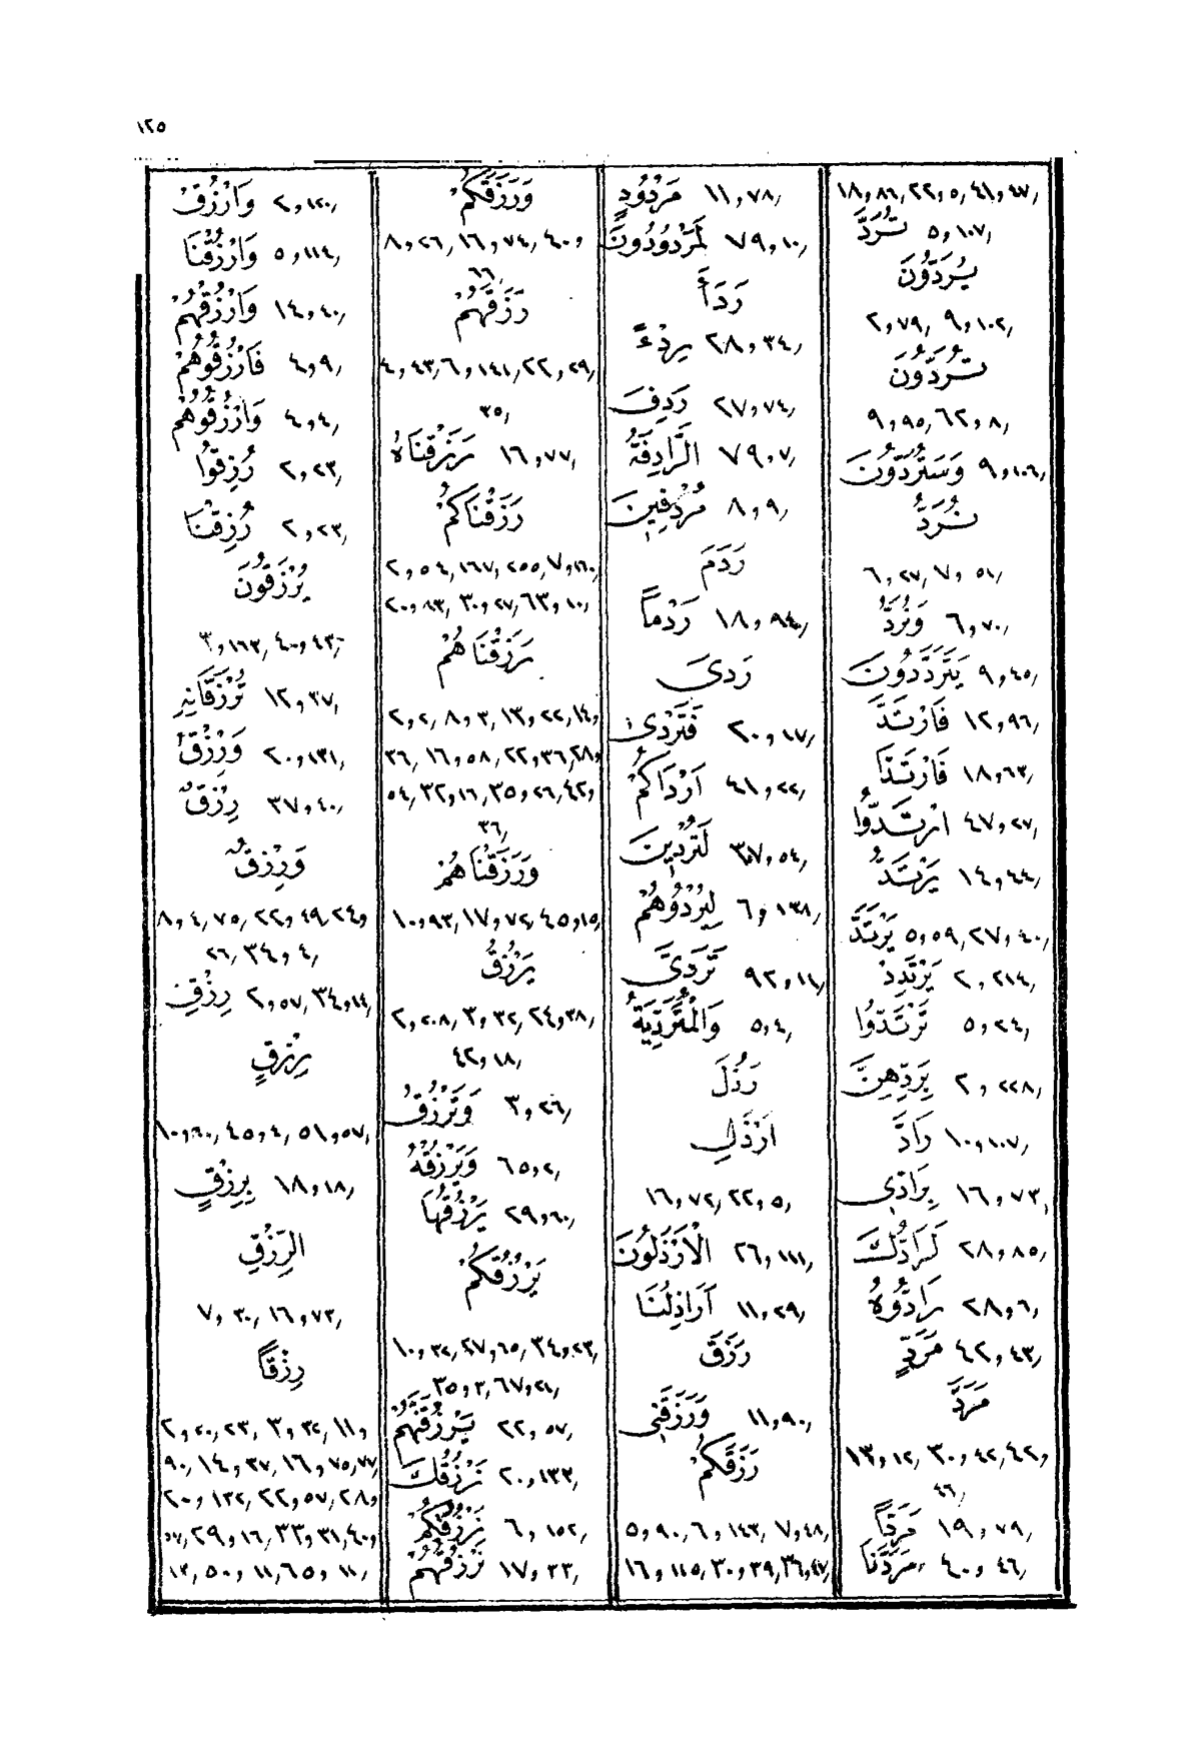 ١٢٥
١٨و٨٦, ٢٢و٥, ٤١و٤٧,
تُرَدَّ ٥و١٠٧,
يُرَدُّونَ
٢و٧٩, ٩و١٠٢,
تُرَدُّونَ
٩و٩٥, ٦٢و٨,
وَسَتُرَدُّونَ ٩و١٠٦,
نُرَدُّ
٦و٢٧, ٧و٥١,
وَنُرَدُّ ٦و٧٠,
يَتَرَدَّدُونَ ٩و٤٥,
فَارْتَدَّ ١٢و٩٦,
فَارْتَدَّا ١٨و٦٣,
ارْتَدُّوا ٤٧و٢٧,
يَرْتَدُّ ١٤و٤٤,
يَرْتَدَّ ٥و٥٩, ٢٧و٤٠,
يَرْتَدِدْ ٢و٢١٤,
تَرْتَدُّوا ٥و٢٤,
بِرَدِّهِنَّ ٢و٢٢٨,
رَادَّ ١٠و١٠٧,
بِرَادِّي ١٦و٧٣,
لَرَادُّكَ ٢٨و٨٥,
رَادُّوهُ ٢٨و٦,
مَرَدٍّ ٤٢و٤٣,
مَرَدَّ
١٣و١٢, ٣٠و٤٢, ٤٢و٤٢,
٤٦,
مَرَدًّا ١٩و٧٩,
مَرَدَّنَا ٤٠و٤٦,
مَرْدُودٍ ١١و٧٨,
لَمَرْدُودُونَ ٧٩و١٠,
رَدَأَ
رِدْءً ٢٨و٣٤,
رَدِفَ ٢٧و٧٤,
الرَّادِفَةُ ٧٩و٧,
مُرْدِفِينَ ٨و٩,
رَدَمَ
رَدْماً ١٨و٩٤,
رَدىَ
فَتَرْدىٰ ٢٠و١٧,
اَرْدَاكُمْ ٤١و٢٢,
لَتُرْدِينَ ٣٧و٥٤,
لِيُرْدُوهُمْ ٦و١٣٨,
تَرَدَّىٰ ٩٢و١١,
وَالْمُتَرَدِّيَةُ ٥و٤,
رَذُلَ
اَرْذَلِ
١٦و٧٢, ٢٢و٥,
الْاَرْذَلُونَ ٢٦و١١١,
اَرَاذِلُنَا ١١و٢٩,
رَزَقَ
وَرَزَقَنِى ١١و٩٠,
رَزَقَكُمُ
٥و٩٠, ٦و١٤٣, ٧و٤٨,
١٦و١١٥, ٣٠و٣٩, ٣٦و٤٧,
وَرَزَقَكُمْ
٨و٢٦, ١٦و٧٤, ٤٠و
٦٦,
رَزَقَهُمْ
٤و٤٣, ٦و١٤١, ٢٢و٢٩,
٣٥,
رَزَقْنَاهُ ١٦و٧٧,
رَزَقْنَاكُمْ
٢و٥٤, ١٦٧, ٢٥٥, ٧و١٦٠,
٢٠و٨٣, ٣٠و٢٧, ٦٣و١٠,
رَزَقْنَاهُمْ
٢و٢, ٨و٣, ١٣و٢٢, ١٤و
٣٦, ١٦و٥٨, ٢٢و٣٦, ٢٨و
٥٤, ٣٢و١٦, ٣٥و٢٦, ٤٢و
٣٦,
وَرَزَقْنَاهُمْ
١٠و٩٣, ١٧و٧٢, ٤٥و١٥,
يَرْزُقُ
٢و٢٠٨, ٣و٣٢, ٢٤و٣٨,
٤٢و١٨,
وَتَرْزُقُ ٣و٢٦,
وَيَرْزُقْهُ ٦٥و٢,
يَرْزُقُهَا ٢٩و٦٠,
يَرْزُقُكُمْ
١٠و٣٢, ٢٧و٦٥, ٣٤و٢٣,
٣٥و٣, ٦٧و٢١,
يَرْزُقَنَّهُمُ ٢٢و٥٧,
نَرْزُقُكَ ٢٠و١٣٢,
نَرْزُقُكُمْ ٦و١٥٢,
نَرْزُقُهُمْ ١٧و٣٣,
وَارْزُقْ ٢و١٢٠,
وَارْزُقْنَا ٥و١١٤,
وَارْزُقْهُمْ ١٤و٤٠,
فَارْزُقُوهُمْ ٤و٩,
وَارْزُقُوهُمْ ٤و٤,
رُزِقُوا ٢و٢٣,
رُزِقْنَا ٢و٢٣,
يُرْزَقُونَ
٣و١٦٣, ٤٠و٤٣,
تُرْزَقَانِهِ ١٢و٣٧,
وَرِزْقُ ٢٠و١٣١,
رِزْقٌ ٣٧و٤٠,
وَرِزْقٌ
٨و٤, ٧٥, ٢٢و٤٩, ٢٤و
٢٦, ٣٤و٤,
رِزْقِ ٢و٥٧, ٣٤و١٤,
رِزْقٍ
١٠و٦٠, ٤٥و٤, ٥١و٥٧,
بِرِزْقٍ ١٨و١٨,
الرِّزْقِ
٧و٣٠, ١٦و٧٣,
رِزْقًا
٢و٢٠, ٢٣, ٣و٣٢, ١١و
٩٠, ١٤و٣٧, ١٦و٧٥, ٧٧,
٢٠و١٣٢, ٢٢و٥٧, ٢٨و
٥٧, ٢٩و١٦, ٣٣و٣١, ٤٠و
١٣, ٥٠و١١, ٦٥و١١,